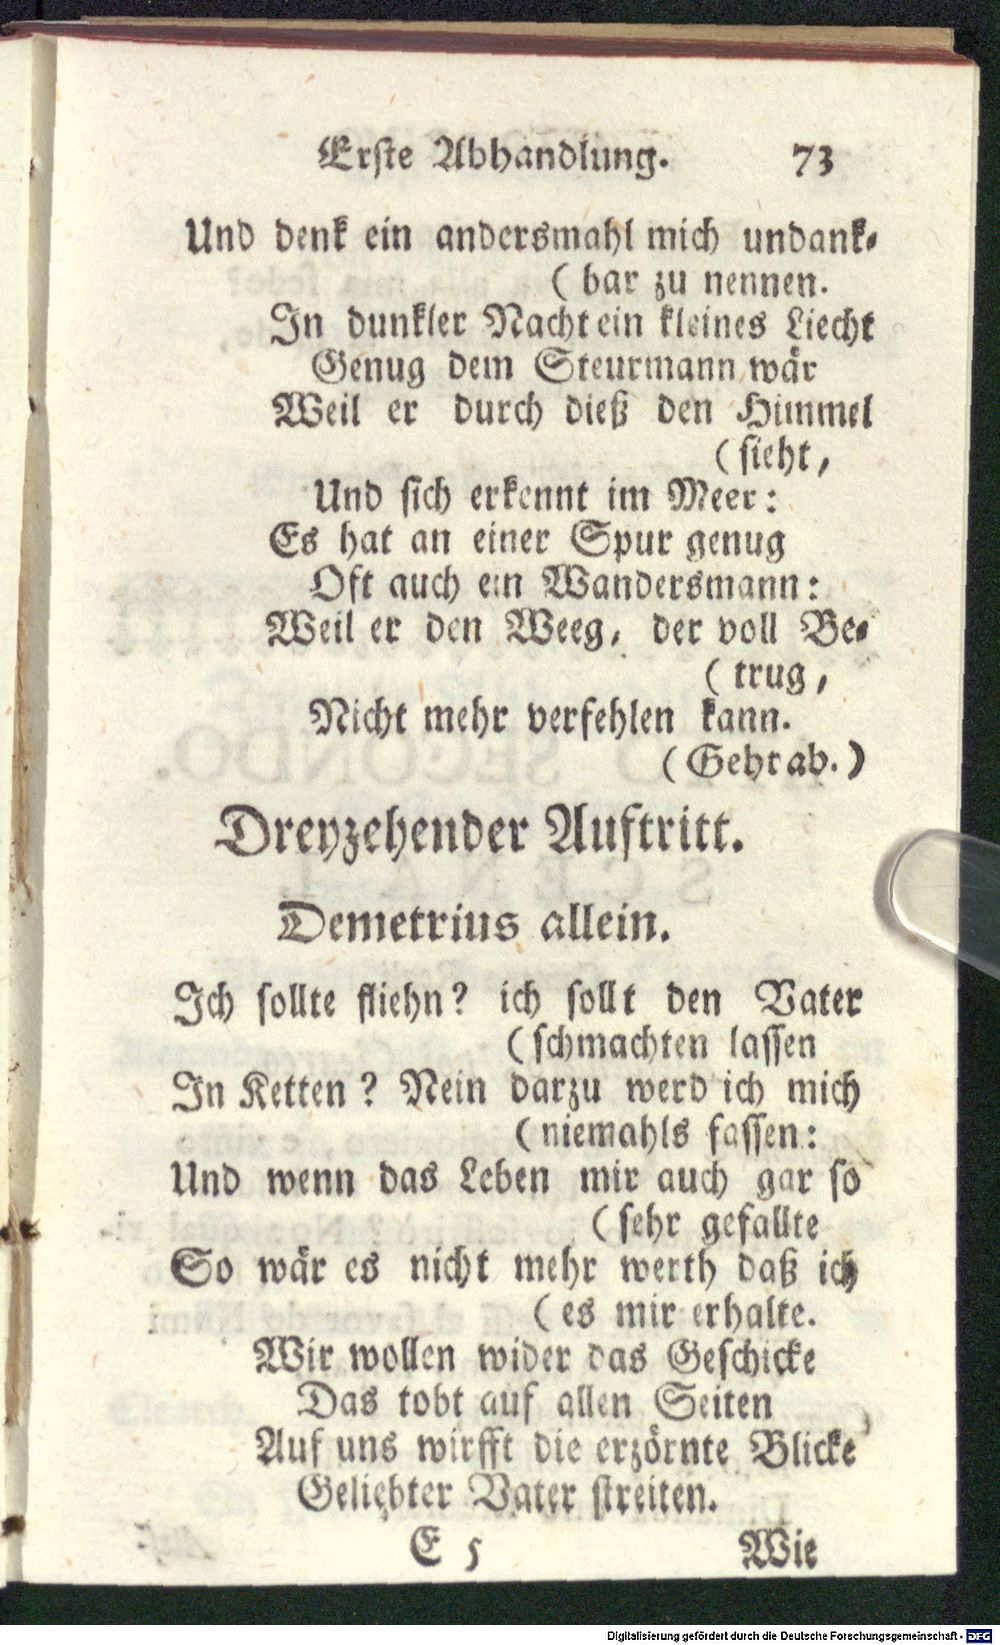 Erste Abhandlung. 73
Und denk ein andersmahl mich undank-
(bar zu nennen.
In dunkler Nacht ein kleines Liecht
Genug dem Steurmann wär
Weil er durch dieß den Himmel
(sieht,
Und sich erkennt im Meer:
Es hat an einer Spur genug
Oft auch ein Wandersmann:
Weil er den Weeg, der voll Be-
(trug,
Nicht mehr verfehlen kann.
(Geht ab.)
Dreyzehender Auftritt.
Demetrius allein.
Ich sollte fliehn? ich sollt den Vater
(schmachten lassen
In Ketten? Nein darzu werd ich mich
(niemahls fassen:
Und wenn das Leben mir auch gar so
(sehr gefallte
So wär es nicht mehr werth daß ich
(es mir erhalte.
Wir wollen wider das Geschicke
Das tobt auf allen Seiten
Auf uns wirfft die erzörnte Blicke
Geliebter Vater streiten.
E 5 Wie
Digitalisierung gefördert durch die Deutsche Forschungsgemeinschaft - DFG